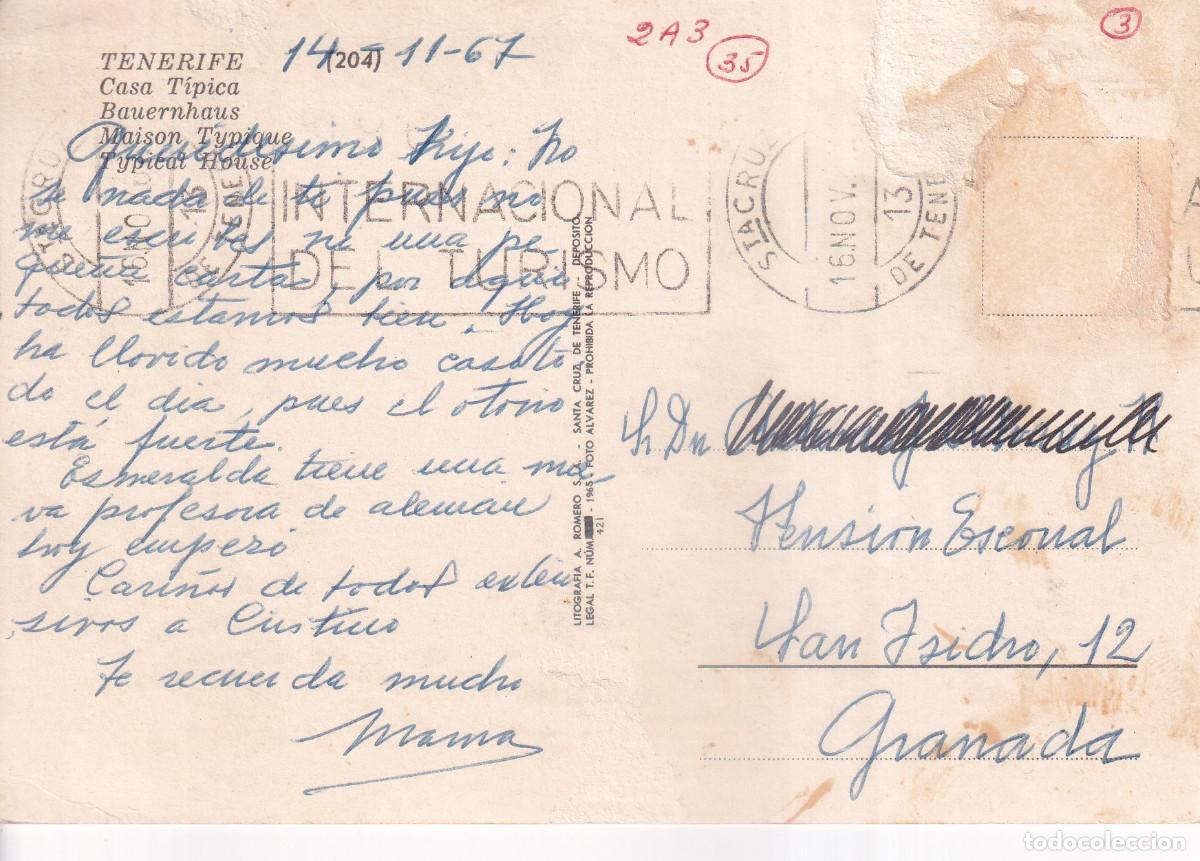 TENERIFE
Casa Típica
Bauernhaus
Maison Typique
Typical House
(204)
14-11-67
2A3
35
3
Queridísimo Hijo: No
se nada de ti pues no
me escribes ni una pe
queña carta. por aqui
todos estamos bien, Hoy
ha llovido mucho casi to
do el dia, pues el otoño
está fuerte.
Esmeralda tiene una nue
va profesora de aleman
hoy empezó
Cariños de todos exten
sivos a
Te recuerda mucho
Mama
STA CRUZ DE TENE
16.NOV.
13
INTERNACIONAL
DEL TURISMO
STA CRUZ DE TENE
16.NOV.
13
A
LITOGRAFIA A. ROMERO S. A. - SANTA CRUZ DE TENERIFE - DEPOSITO
LEGAL T. F. NÚM. - 1965 FOTO ALVAREZ - PROHIBIDA LA REPRODUCCION
421
Sr. Dn
Pension Escorial
San Isidro, 12
Granada
todocoleccion